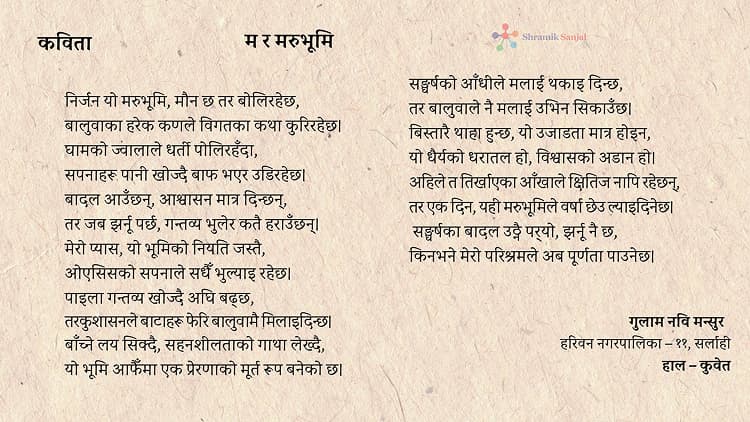 कविता
म र मरुभूमि
Shramik Sanjal
निर्जन यो मरुभूमि, मौन छ तर बोलिरहेछ,
बालुवाका हरेक कणले विगतका कथा कुरिरहेछ।
घामको ज्वालाले धर्ती पोलिरहँदा,
सपनाहरू पानी खोज्दै बाफ भएर उडिरहेछ।
बादल आउँछन्, आश्वासन मात्र दिन्छन्,
तर जब झर्नू पर्छ, गन्तव्य भुलेर कतै हराउँछन्।
मेरो प्यास, यो भूमिको नियति जस्तै,
ओएसिसको सपनाले सधैँ भुल्याइ रहेछ।
पाइला गन्तव्य खोज्दै अघि बढ्छ,
तरकुशासनले बाटाहरू फेरि बालुवामै मिलाइदिन्छ।
बाँच्ने लय सिक्दै, सहनशीलताको गाथा लेख्दै,
यो भूमि आफैँमा एक प्रेरणाको मूर्त रूप बनेको छ।
सङ्घर्षको आँधीले मलाई थकाइ दिन्छ,
तर बालुवाले नै मलाई उभिन सिकाउँछ।
बिस्तारै थाहा हुन्छ, यो उजाडता मात्र होइन,
यो धैर्यको धरातल हो, विश्वासको अडान हो।
अहिले त तिर्खाएका आँखाले क्षितिज नापि रहेछन्,
तर एक दिन, यही मरुभूमिले वर्षा छेउ ल्याइदिनेछ।
सङ्घर्षका बादल उड्नै पर्‍यो, झर्नू नै छ,
किनभने मेरो परिश्रमले अब पूर्णता पाउनेछ।
गुलाम नवि मन्सुर
हरिवन नगरपालिका – ११, सर्लाही
हाल – कुवेत